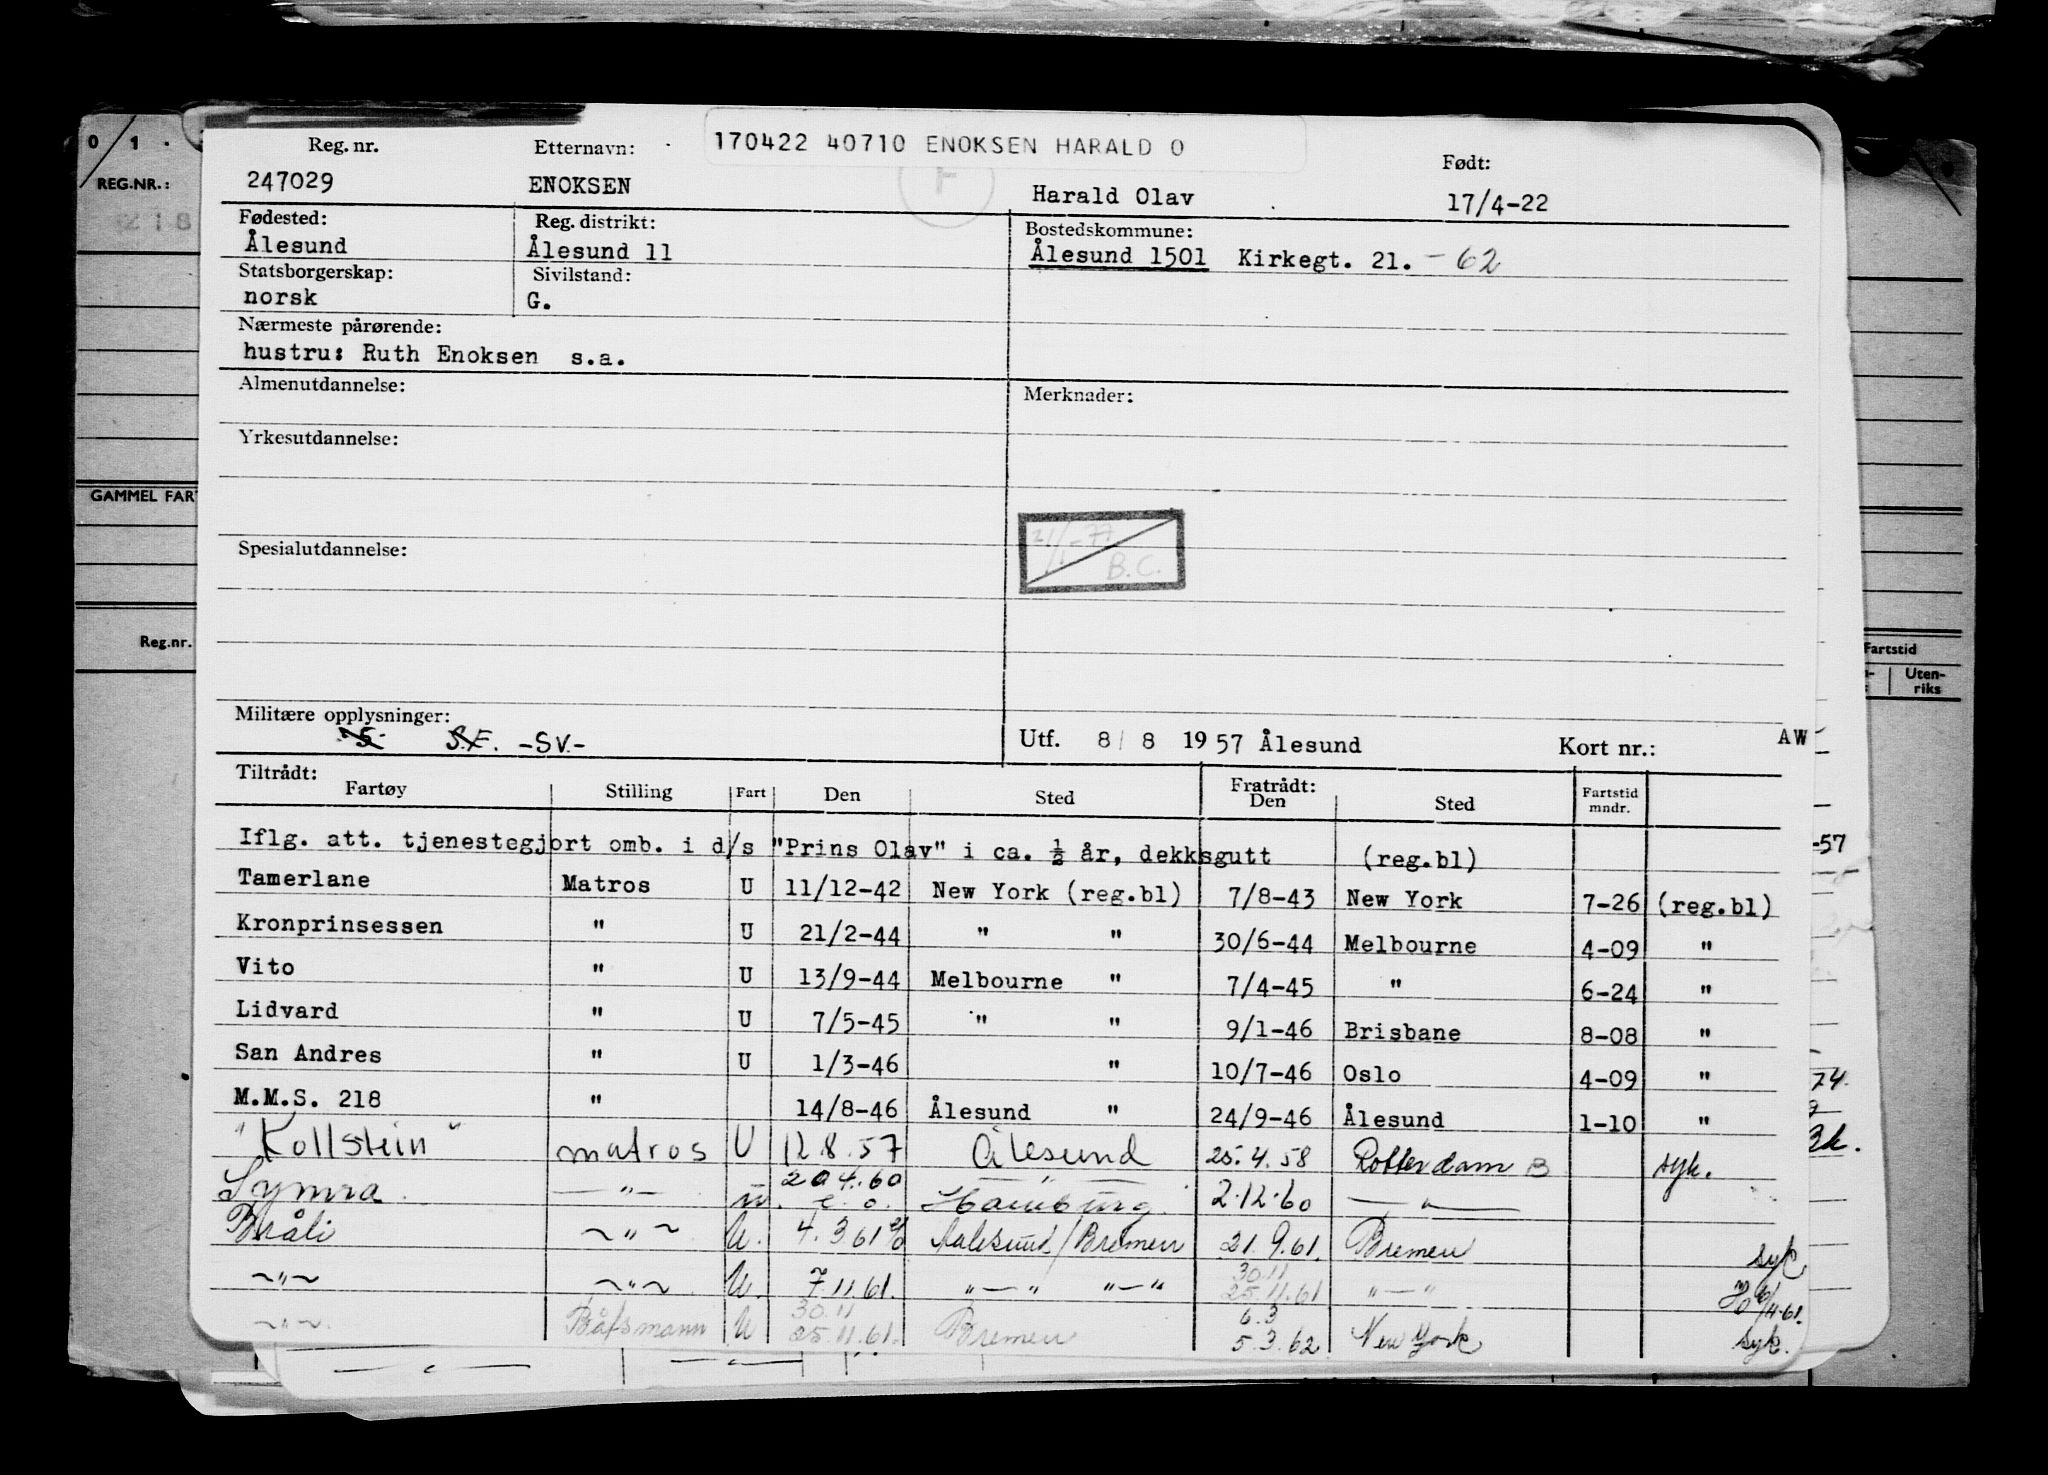 170422 40710 ENOKSEN HARALD O
0 1
REG.NR.:
GAMMEL FAR
Reg.nr.
Fartstid
Uten-
riks
Reg. nr. Etternavn: Født:
F
247029 ENOKSEN Harald Olav 17/4-22
Fødested: Reg. distrikt: Bostedskommune:
Ålesund Ålesund 11 Ålesund 1501 Kirkegt. 21. - 62
Statsborgerskap: Sivilstand:
norsk G.
Nærmeste pårørende:
hustru: Ruth Enoksen s.a.
Almenutdannelse: Merknader:
Yrkesutdannelse:
21/1-77
B.C.
Spesialutdannelse:
Militære opplysninger:
S.F. -SV.-
Utf. 8/8 1957 Ålesund Kort nr.: AW
Tiltrådt: Fratrådt:
Fartøy Stilling Fart Den Sted Den Sted Fartstid mndr.
Iflg. att. tjenestegjort omb. i d/s "Prins Olav" i ca. ½ år, dekksgutt (reg.bl)
-57
Tamerlane Matros U 11/12-42 New York (reg.bl) 7/8-43 New York 7-26 (reg.bl)
Kronprinsessen " U 21/2-44 " " 30/6-44 Melbourne 4-09 "
Vito " U 13/9-44 Melbourne " 7/4-45 " 6-24 "
Lidvard " U 7/5-45 " " 9/1-46 Brisbane 8-08 "
San Andres " U 1/3-46 " 10/7-46 Oslo 4-09 "
74.
M.M.S. 218 " 14/8-46 Ålesund " 24/9-46 Ålesund 1-10 "
"Kollstein" matros U 12.8.57 Ålesund 25.4.58 Rotterdam B syk.
Lymra —"— u. 20.4.60 e.o. —"— Hamburg 2.12.60 —"—
Bråli ~"~ U. 4.3.61 Aalesund/Bremen 21.9.61. Bremen syk
~"~ ~"~ U. 7.11.61. "—" "—" 30.11 25.11.61 "—" 6/11-61.
~"~ Båtsmann U 30.11 25.11.61. Bremen 6.3 5.3.62 New York syk.